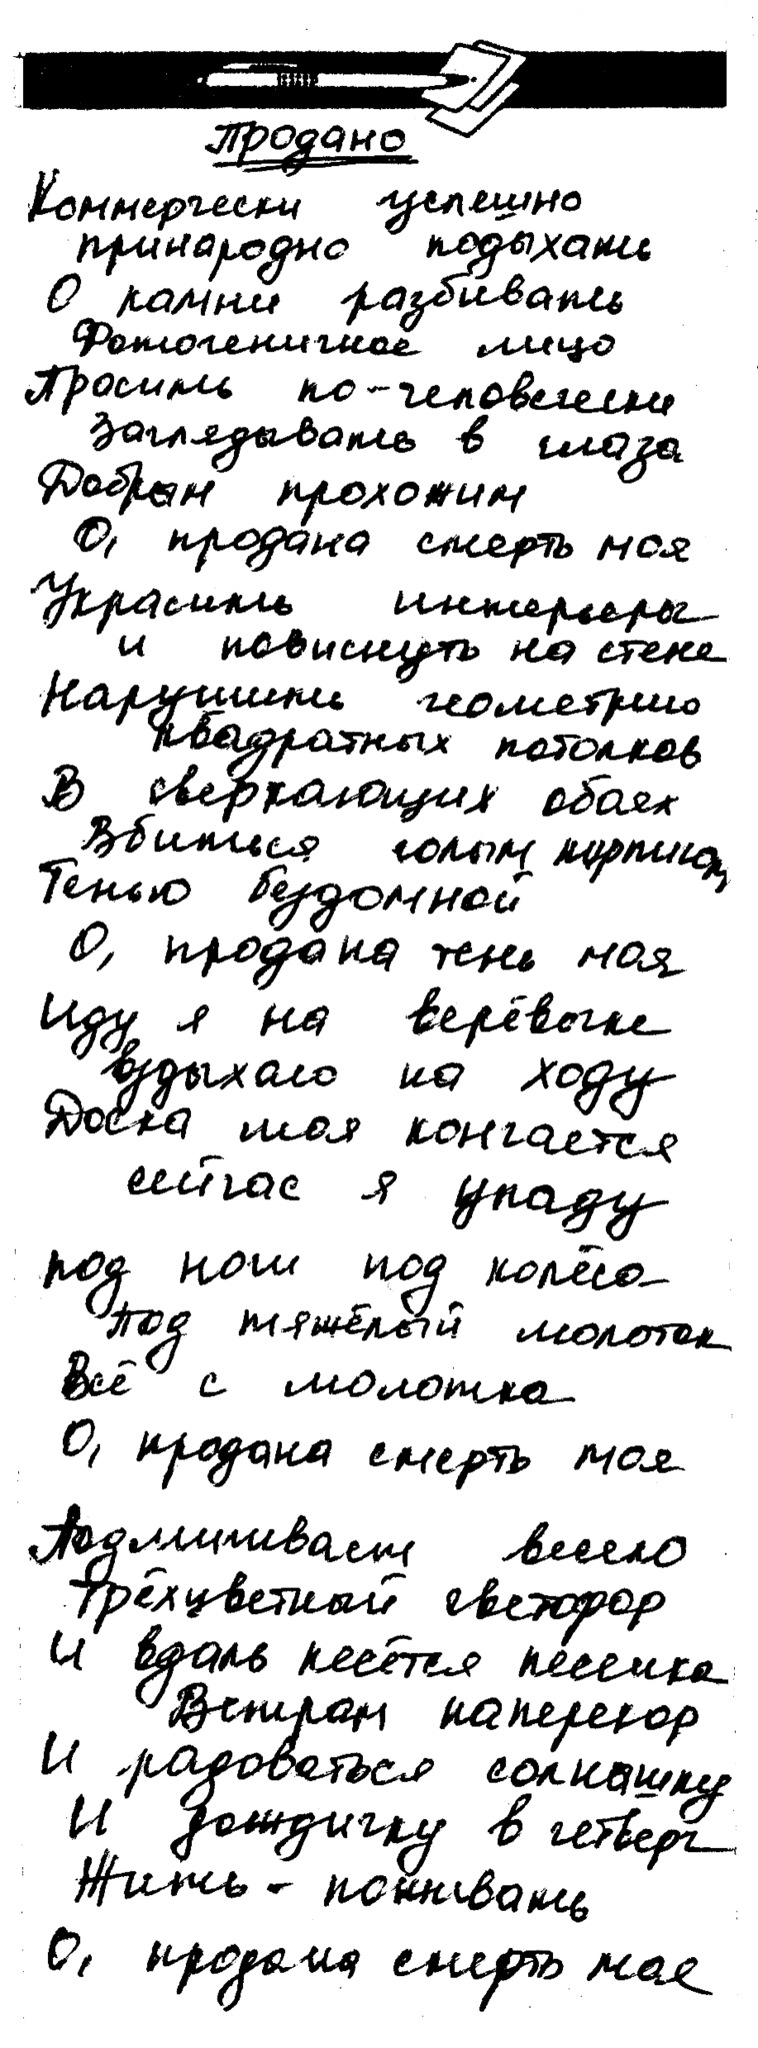 Продано
Коммерчески успешно
принародно подыхать
О камни разбивать
Фотогеничное лицо
Просить по-человечески
Заглядывать в глаза
Добрым прохожим
О, продана смерть моя
Украсить интерьеры
и повиснуть на стене
Нарушить геометрию
квадратных потолков
В сверкающих обоях
Вбиться голым кирпичом
Тенью бездомной
О, продана тень моя
Иду я на верёвочке
вздыхаю на ходу
Доска моя кончается
сейчас я упаду
под ноги под колёса
под тяжёлый молоток
Всё с молотка
О, продана смерть моя
Подмигивает весело
Трёхцветный светофор
И вдаль несётся песенка
Ветрам наперекор
И радоваться солнышку
И дождичку в четверг
Жить - поживать
О, продана смерть моя